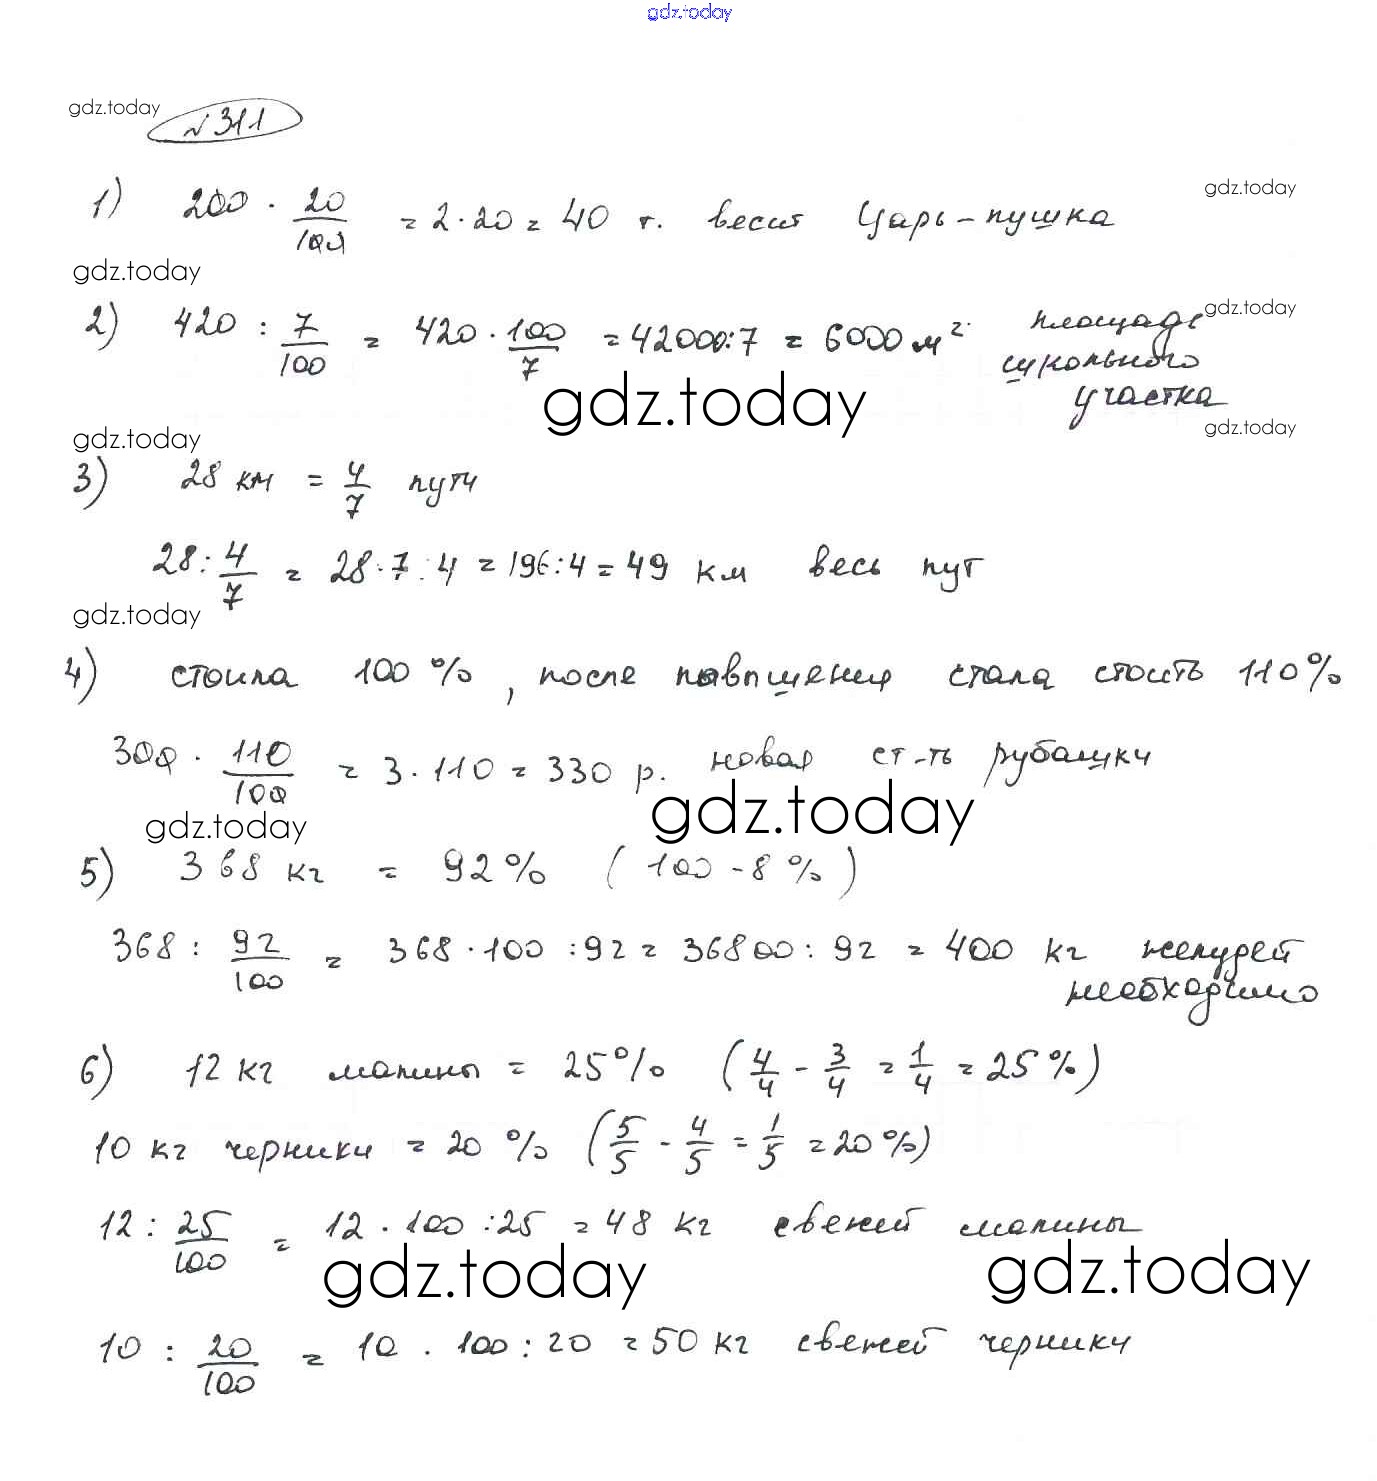 gdz.today
gdz.today
№ 311
1) 200 · 20/100 = 2 · 20 = 40 т. весит Царь-пушка
gdz.today
gdz.today
2) 420 : 7/100 = 420 · 100/7 = 42000:7 = 6000 м². площадь
gdz.today
школьного
участка
gdz.today
gdz.today
gdz.today
3) 28 км = 4/7 пути
28 : 4/7 = 28 · 7 : 4 = 196:4 = 49 км весь пут
gdz.today
4) стоила 100 %, после повышения стала стоить 110%
300 · 110/100 = 3 · 110 = 330 р. новая ст-ть рубашки
gdz.today
gdz.today
5) 368 кг = 92% (100 - 8 %)
368 : 92/100 = 368 · 100 : 92 = 36800 : 92 = 400 кг желудей
необходимо
6) 12 кг малины = 25% (4/4 - 3/4 = 1/4 = 25 %)
10 кг черники = 20 % (5/5 - 4/5 = 1/5 = 20 %)
12 : 25/100 = 12 · 100 : 25 = 48 кг свежей малины
gdz.today
gdz.today
10 : 20/100 = 10 · 100 : 20 = 50 кг свежей черники